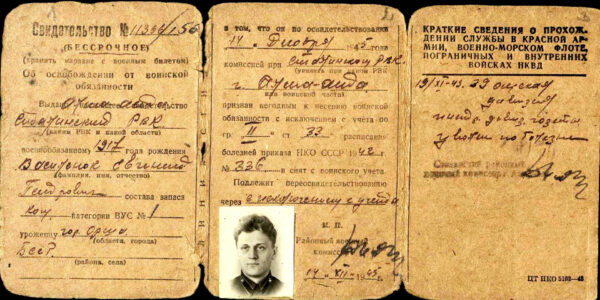 Свидетельство № 11336/156
(БЕССРОЧНОЕ)
(хранить наравне с военным билетом)
Об освобождении от воинской
обязанности
Выдано
РВК
(наимен. РВК и какой области)
военнообязанному 1917 года рождения
Василенок Евгений
(фамилия, имя, отчество)
Петрович состава запаса
категории ВУС № 1
уроженцу гор. Орша
(области, города)
БССР.
(района, села)
в том, что он по освидетельствовании
14 Декабря 1945 года
комиссией при РВК
г. Алма-Ата
(или воинской части)
признан негодным к несению воинской
обязанности с исключением с учета по
гр. II ст 33 расписания
болезней приказа НКО СССР 1942 г.
№ 336 и снят с воинского учета.
Подлежит переосвидетельствованию
через с исключением с учета
М. П.
Районный военный
комиссар
14 XII 1945 г.
КРАТКИЕ СВЕДЕНИЯ О ПРОХОЖ-
ДЕНИИ СЛУЖБЫ В КРАСНОЙ АР-
МИИ, ВОЕННО-МОРСКОМ ФЛОТЕ,
ПОГРАНИЧНЫХ И ВНУТРЕННИХ
ВОЙСКАХ НКВД
19/XI-43. 39
дивизия
газета
уволен по болезни
районный
военный комиссар
ЦТ НКО 5162—45